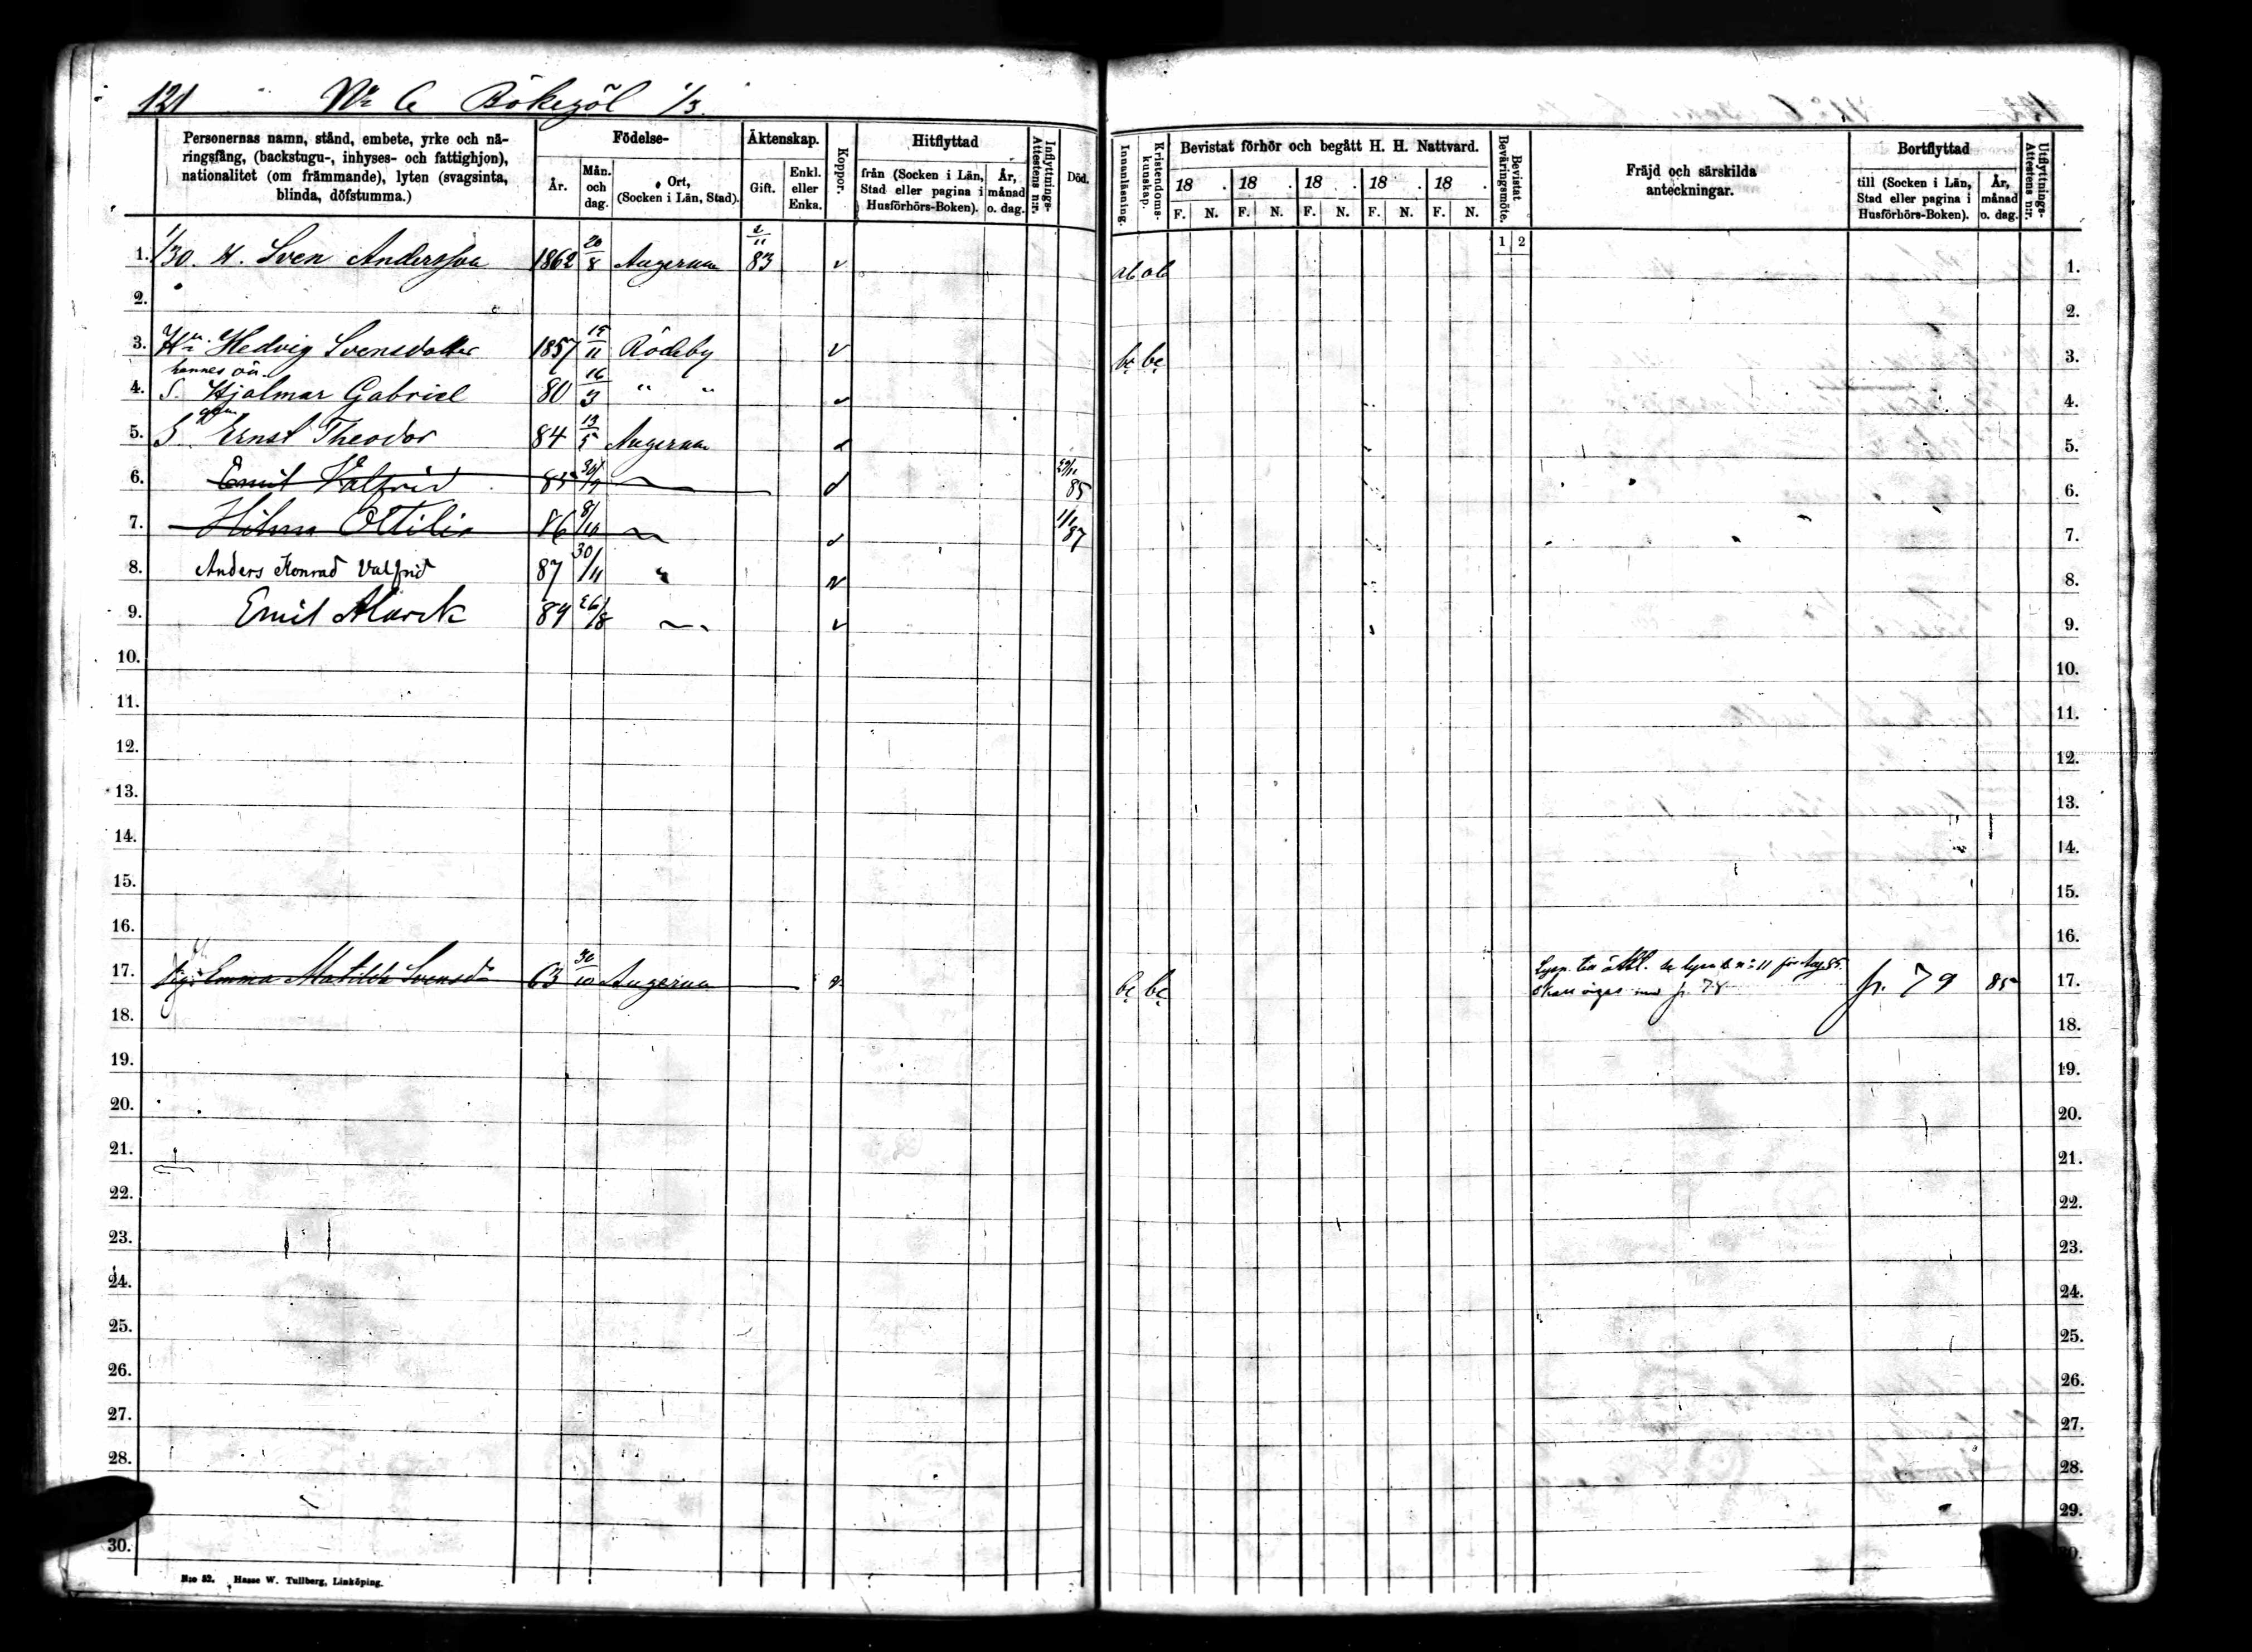 121 Nr 6 Bökegöl 1/3.
Personernas namn, stånd, embete, yrke och nä-
ringsfång, (backstugu-, inhyses- och fattighjon),
nationalitet (om främmande), lyten (svagsinta,
blinda, döfstumma.)
Födelse-
År.
Mån. och dag.
Ort,
(Socken i Län, Stad).
Äktenskap.
Gift.
Enkl. eller Enka.
Koppor.
Hitflyttad
från (Socken i Län,
Stad eller pagina i
Husförhörs-Boken).
År, månad o. dag.
Inflyttnings-
Attestens n:r.
Död.
Innanläsning.
Kristendoms-
kunskap.
Bevistat förhör och begått H. H. Nattvard.
18 . 18 . 18 . 18 . 18 .
F. N. F. N. F. N. F. N. F. N.
Bevistat
Beväringsmöte.
1 2
Fräjd och särskilda
anteckningar.
Bortflyttad
till (Socken i Län,
Stad eller pagina i
Husförhörs-Boken).
År, månad o. dag.
Utflyttnings-
Attestens n:r.
1. 1/30. H. Sven Andersson 1862 20/8 Augerum 2/11 83 ab ab 1.
2. 2.
3. Hu. Hedvig Svensdotter 1857 15/11 Rödeby bc bc 3.
hennes oä.
4. S. Hjalmar Gabriel 80 16/3 " " 4.
5. S Ernst Theodor 84 13/5 Augerum 5.
6. Emil Valfrid 85 30/9 29/11 85 6.
7. Hilma Ottilia 86 8/10 1/1 87 7.
8. Anders Konrad Valfrid 87 30/11 " 8.
9. Emil Alarik 89 26/8 9.
10. 10.
11. 11.
12. 12.
13. 13.
14. 14.
15. 15.
16. 16.
17. Pig. Emma Matilda Svensdr 63 30/10 Augerum bc bc Lysn. till äkt. se lysn.b. n:o 11 för Aug 85. fr. 79 85 17.
Skall viges med fr. 78
18. 18.
19. 19.
20. 20.
21. 21.
22. 22.
23. 23.
24. 24.
25. 25.
26. 26.
27. 27.
28. 28.
29.
30.
N:o 52. Hasse W. Tullberg, Linköping.